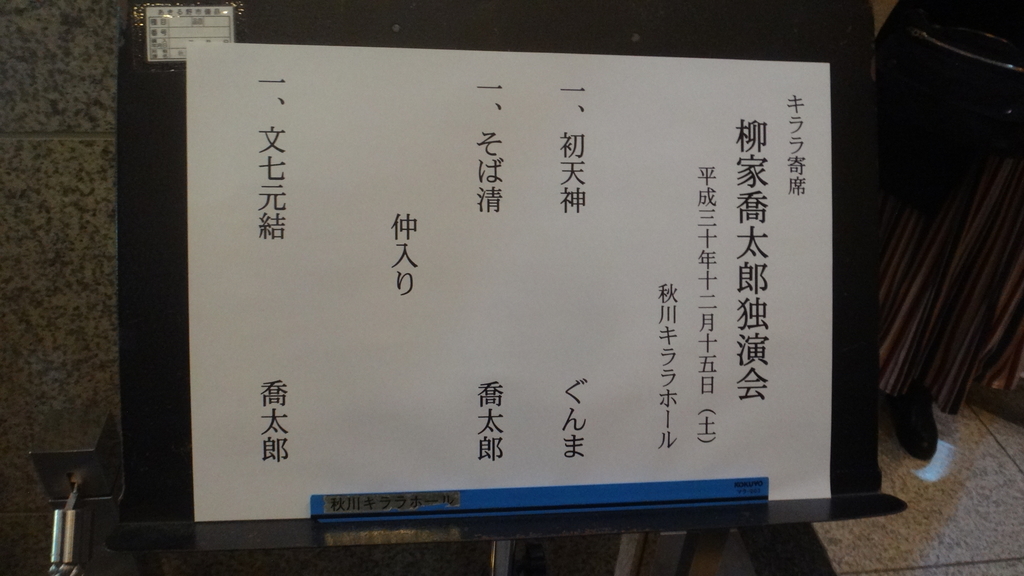 キララ寄席
柳家喬太郎独演会
平成三十年十二月十五日（土）
秋川キララホール
一、初天神　ぐんま
一、そば清　喬太郎
仲入り
一、文七元結　喬太郎
秋川キララホール
KOKUYO